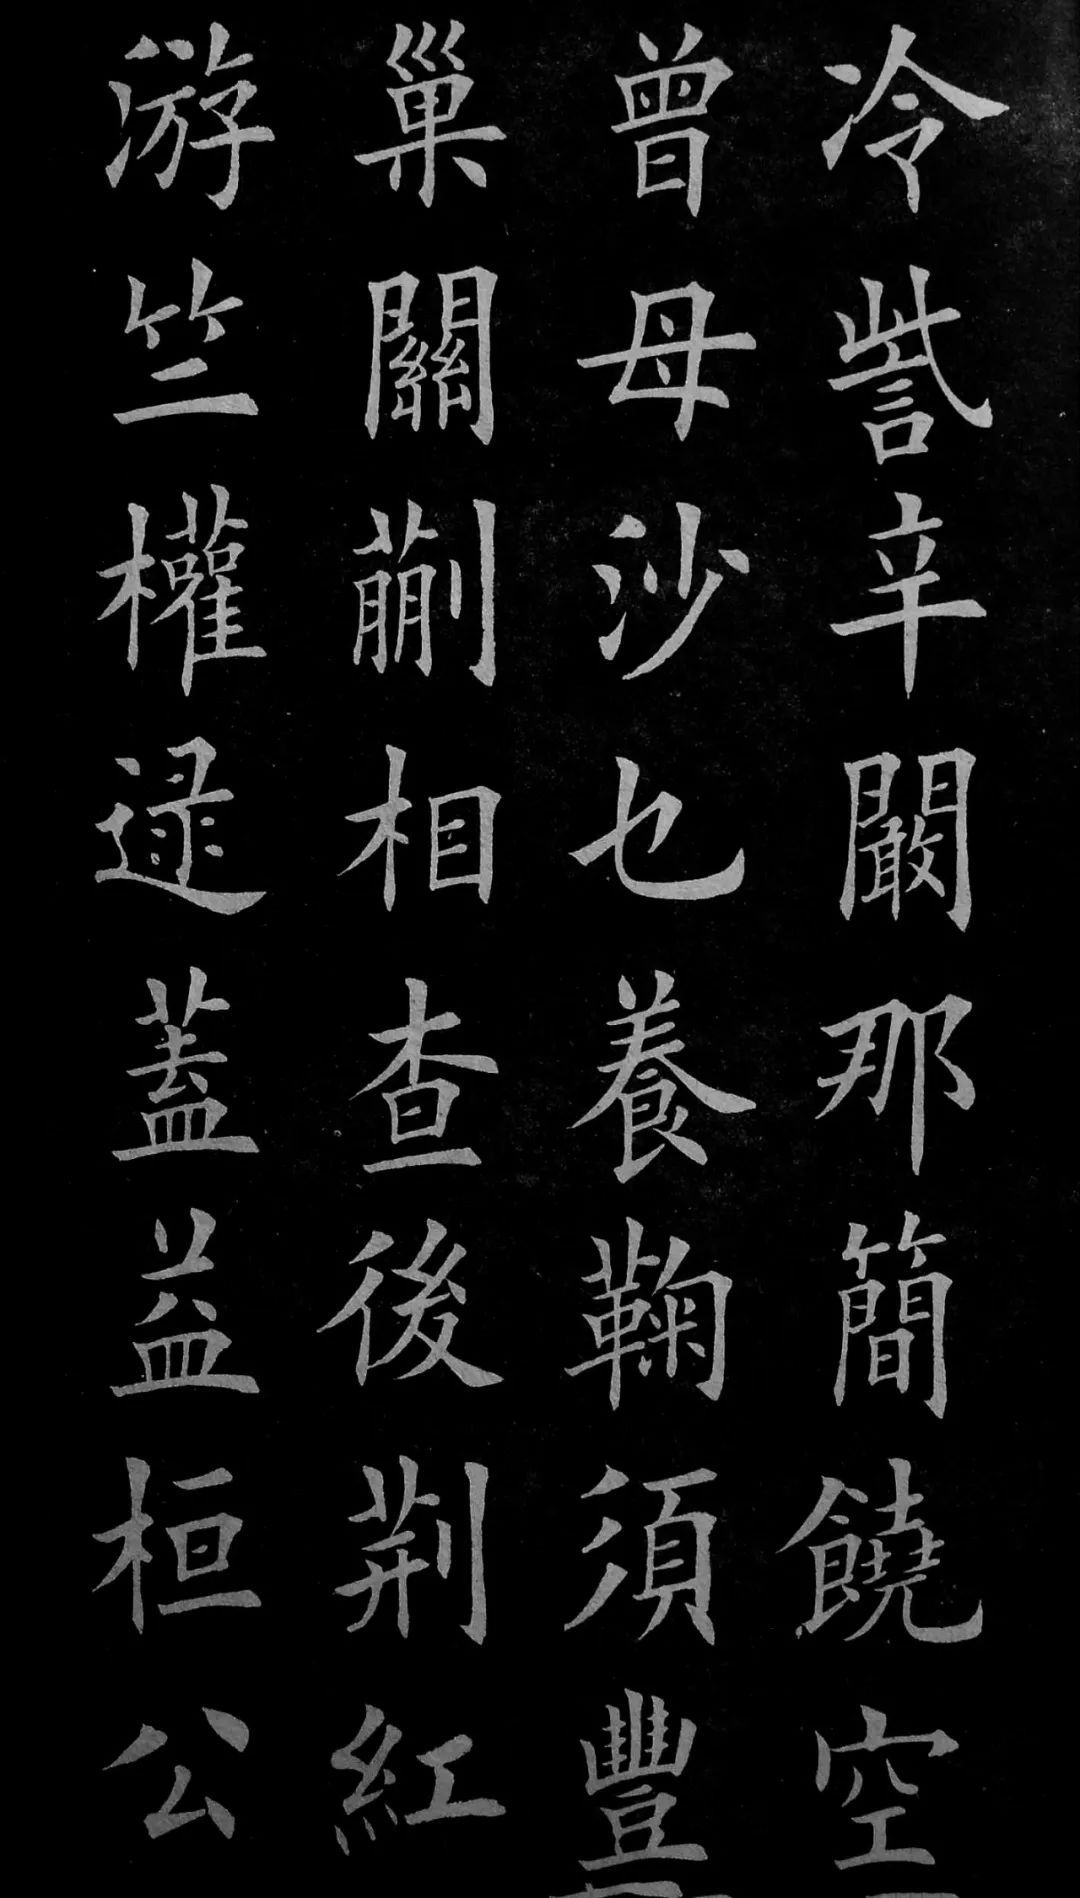 冷訾辛闞那簡饒空
曾母沙乜養鞠須豐
巢關蒯相查後荆紅
游竺權逯蓋益桓公